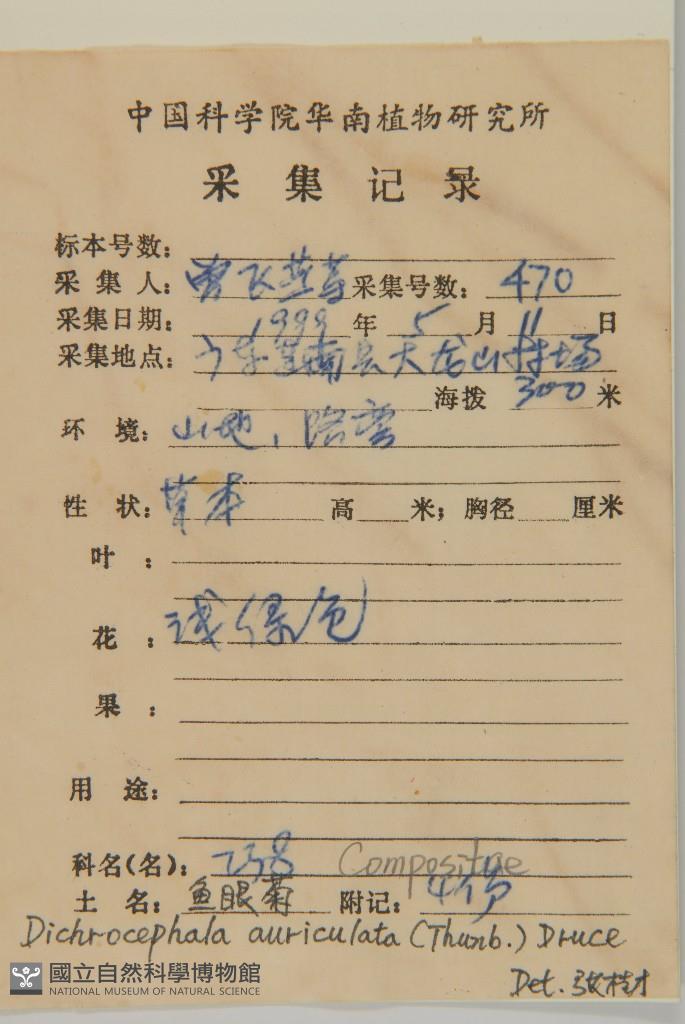 中国科学院华南植物研究所
采集记录
标本号数：
采集人：曾飞燕等 采集号数：470
采集日期：1999年5月11日
采集地点：广东连南县大龙山林场
海拨 300 米
环境：山地，路旁
性状：草本 高 米；胸径 厘米
叶：
花：浅绿色
果：
用途：
科名(名)：238 Compositae
土名：鱼眼菊 附记：4份
Dichrocephala auriculata (Thunb.) Druce
Det. 张桂才
國立自然科學博物館
NATIONAL MUSEUM OF NATURAL SCIENCE